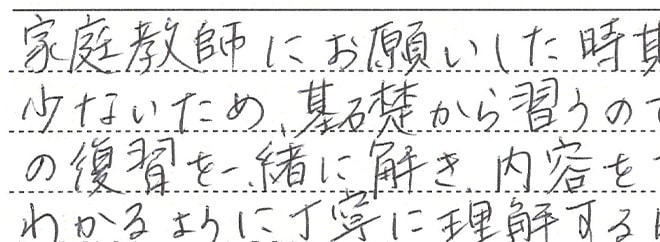 家庭教師にお願いした時期
少ないため、基礎から習うので
の復習を一緒に解き、内容を
わかるように丁寧に理解する